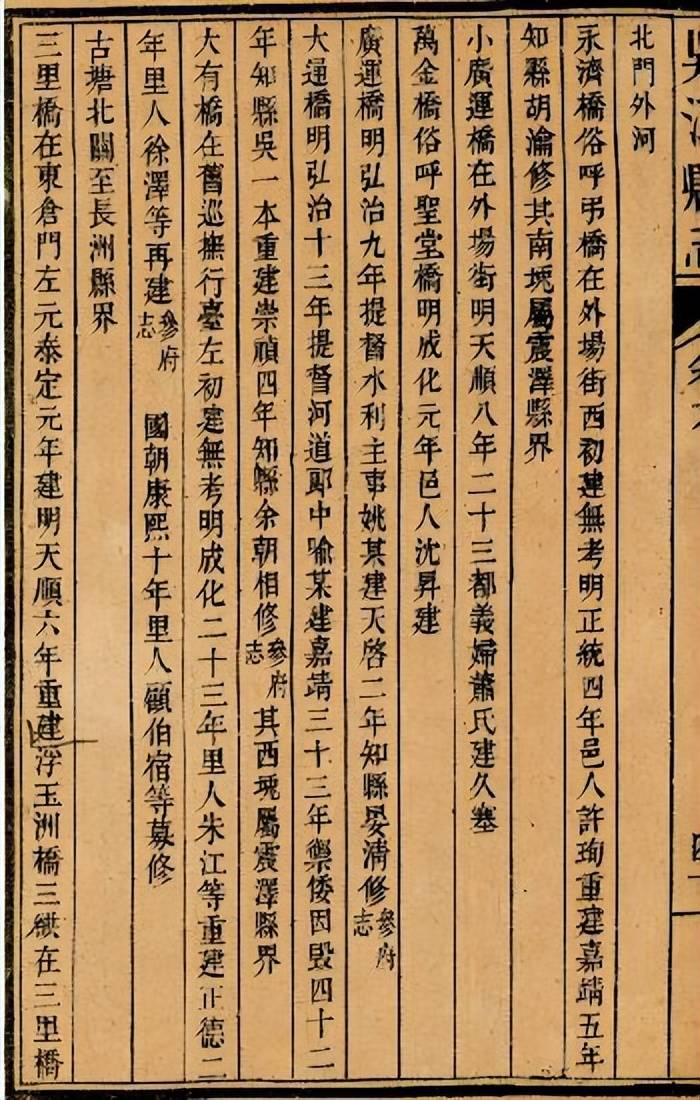 吳江縣志
北門外河
永濟橋俗呼弔橋在外場街西初建無考明正統四年邑人許珣重建嘉靖五年
知縣胡瀹修其南堍屬震澤縣界
小廣運橋在外場街明天順八年二十三都義婦蕭氏建久塞
萬金橋俗呼聖堂橋明成化元年邑人沈昇建
廣運橋明弘治九年提督水利主事姚某建天啓二年知縣晏淸修參府志
大通橋明弘治十三年提督河道郎中喻某建嘉靖三十三年禦倭因毀四十二
年知縣吳一本重建崇禎四年知縣余朝相修參府志其西堍屬震澤縣界
大有橋在舊巡撫行臺左初建無考明成化二十三年里人朱江等重建正德二
年里人徐澤等再建參府志 國朝康熙十年里人顧伯宿等募修
古塘北關至長洲縣界
三里橋在東倉門左元泰定元年建明天順六年重建浮玉洲橋三鉷在三里橋